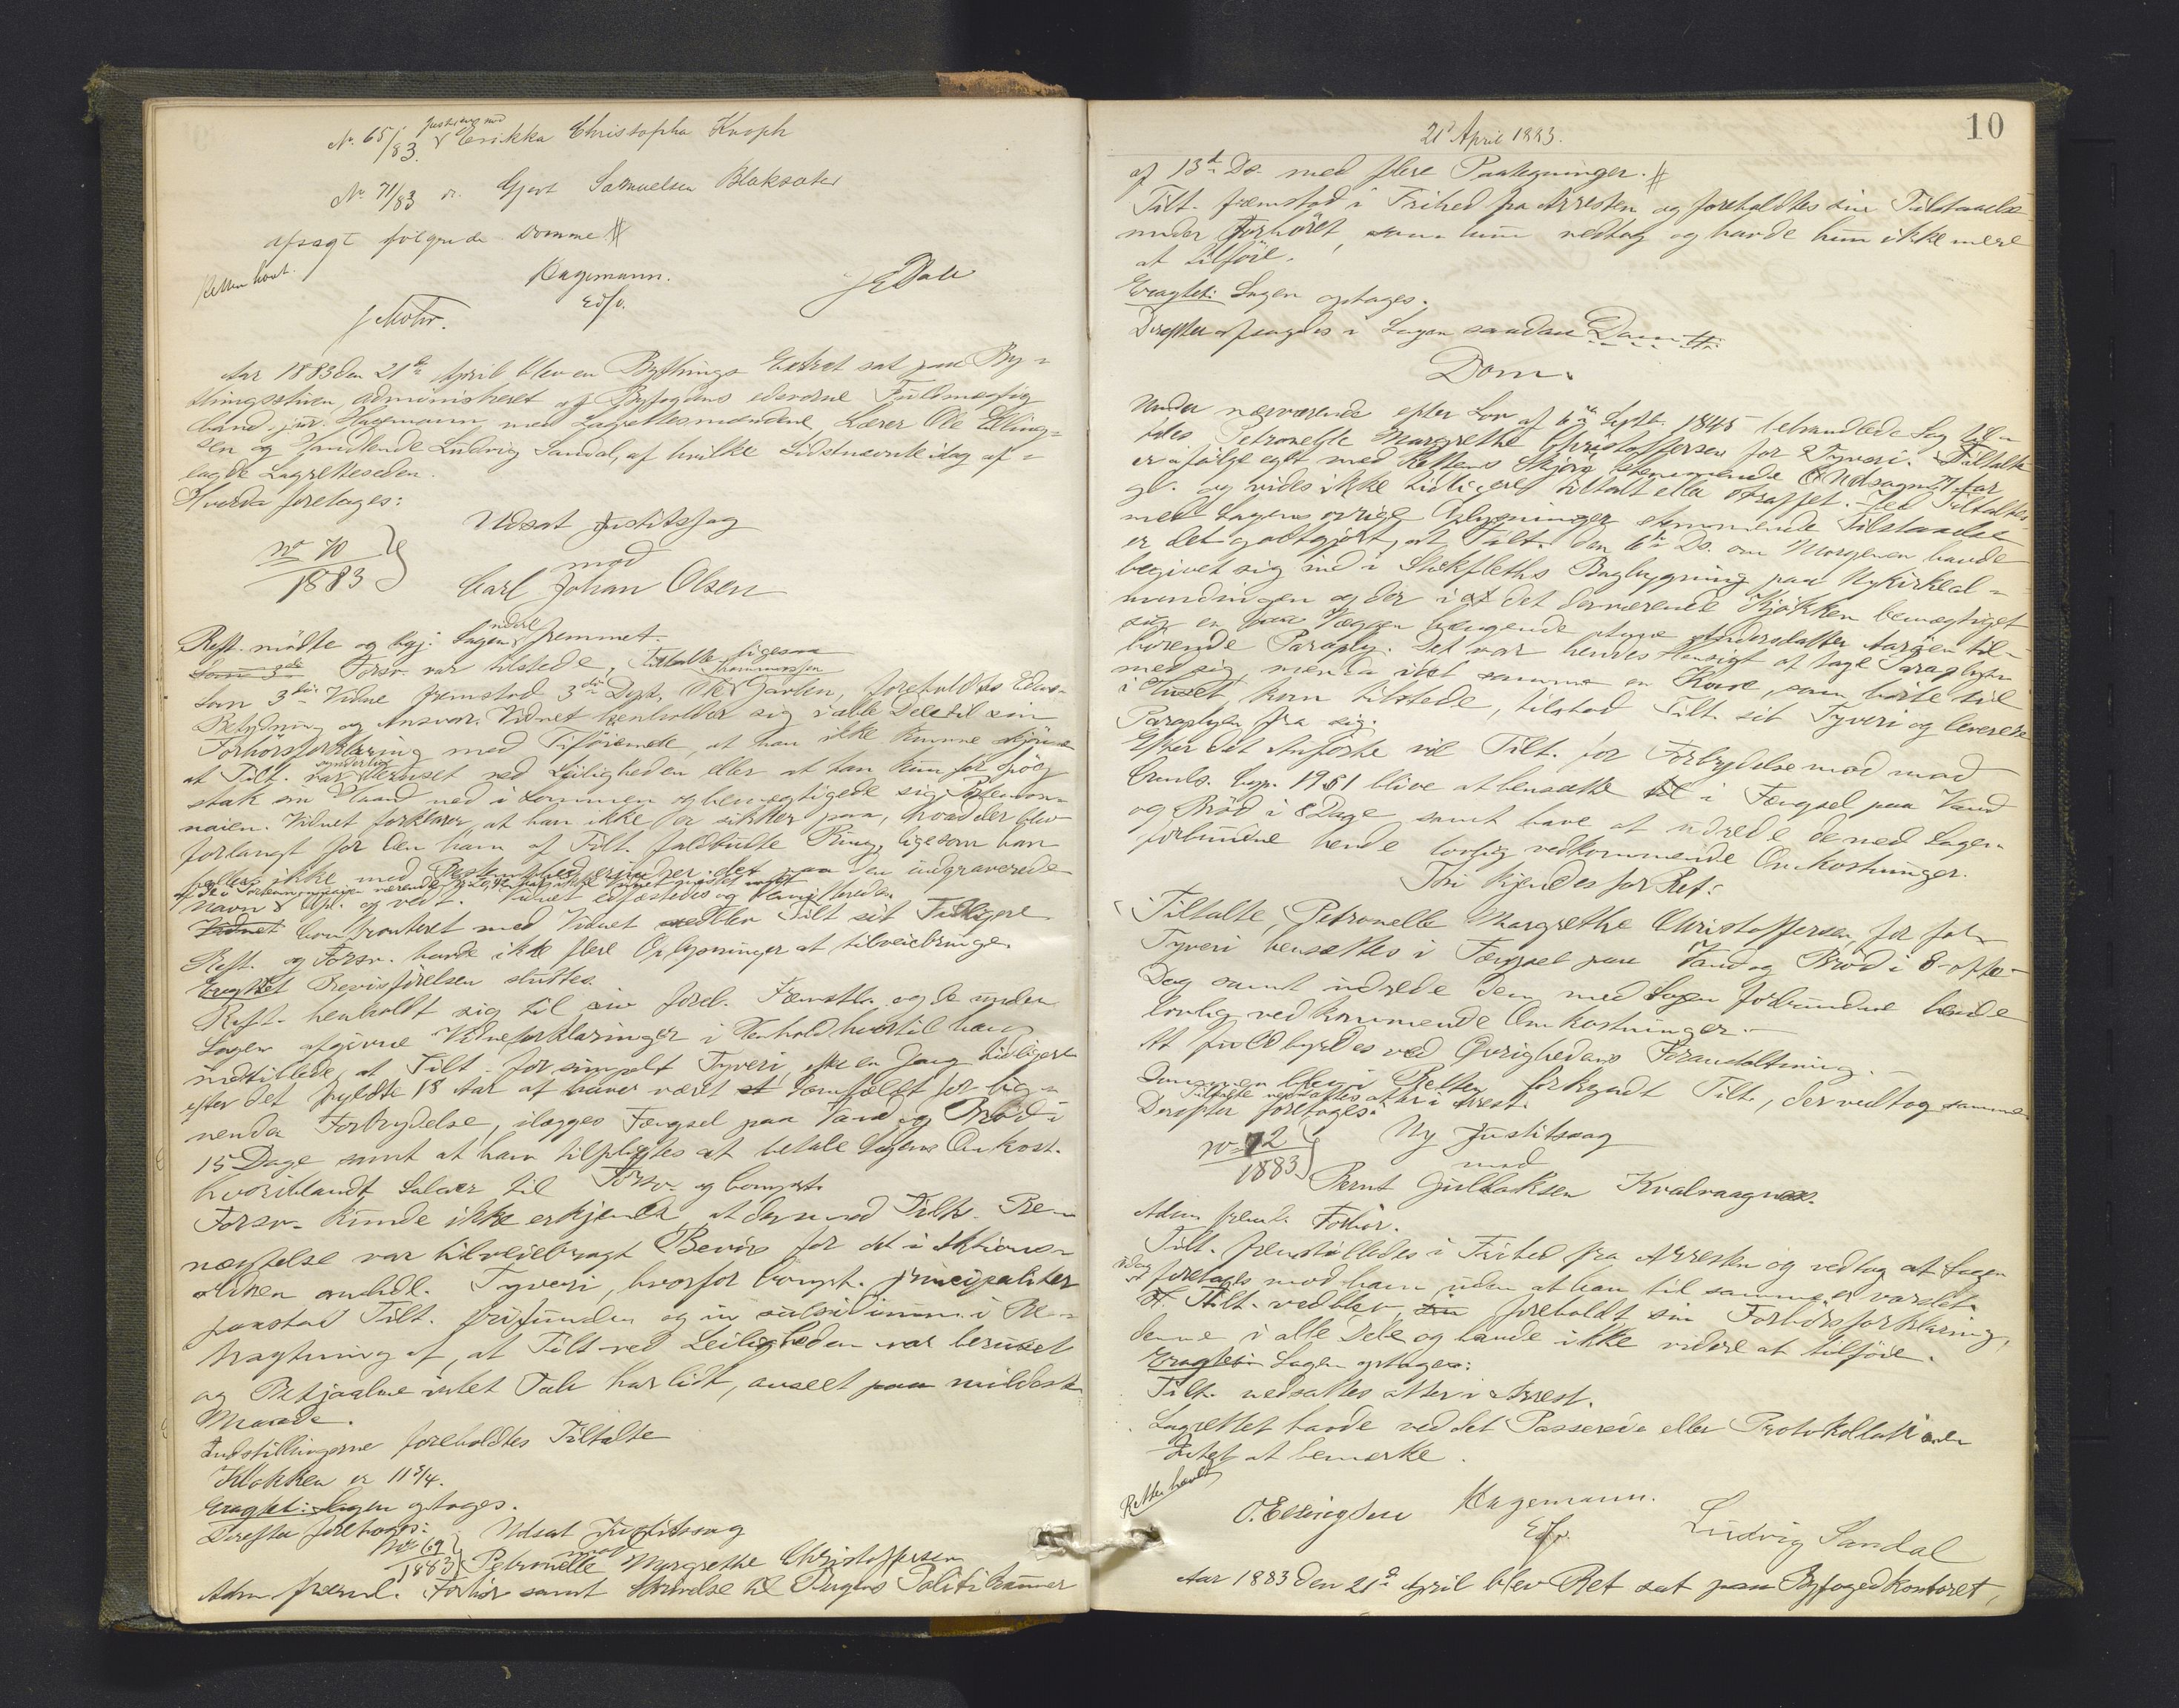 No 65/83. Justitss. mod Erikka Christopha Knoph
No 71/83 v. Gjert Samuelsen Blaksæter
afsagt følgende Domme #
Retten hævet.
Hagemann.
Edf.
J Mohr.
J E Dale
Aar 1883 den 21de April blev en Bythings Extraret sat paa By-
thingsstuen, administreret af Byfogdens edsvorne Fuldmægtig
Cand. jur. Hagemann med Lagrettesmændene, Lærer Ole Elling-
sen og Handlende Ludvig Sandal, af hvilke Sidstnævnte idag af-
lagde Lagretteseden.
Hvorda foretages:
No 70
1883
Udsat Justitssag
mod
Carl Johan Olsen
Reft. mødte og begj. Sagen videre fremmet.
Som 3die Forsv. var tilstede, Tiltalte ligesaa
Som 3die Vidne fremstod 3die Dept. Garlen, foreholdtes Edens
Betydning og Ansvar. Vidnet henholder sig i alle Dele til sin
Forhørsforklaring med Tilføiende, at han ikke kunne skjønne
at Tilt. var synderlig beruset ved Leiligheden eller at han kun for Spøg
stak sin Haand ned i Lommen og bemægtigede sig Portemon-
naien. Vidnet forklarer, at han ikke er sikker paa, hvad der blev
forlangt for den ham af Tilt. falbudte Ring, ligesom han
heller ikke med Bestemthed erindrer det paa den indgraverede
Navn
Vidnet Confronteret med Vidnet vedblev Tilt. sit Tidligere
Reft. og Forsv. havde ikke flere Oplysninger at tilveiebringe.
Eragtet Bevisførelsen sluttes.
Reft. henholdt sig til sin forel. Fremst. og de under
Sagen afgivne Vidneforklaringer i Henhold hvortil han
indstillede, at Tilt. for simpelt Tyveri, efter en Gang tidligere
efter det fyldte 18 Aar at have været domfældt for lig-
nende Forbrydelse, ilægges Fængsel paa Vand og Brød i
15 Dage samt at han tilpligtes at betale Sagens Omkost.
hvoriblandt Salær til Forsv. og Compt.
Forsv. kunde ikke erkjende, at der mod Tilts. Be-
nægtelse var tilveiebragt Bevis for det i Aktions-
ordren omhdl. Tyveri, hvorfor Compt. principaliter
paastod Tilt. frifunden og in subsidium i Be-
tragtning af, at Tilt. ved Leiligheden var beruset
og Bestjaalne intet Tab har lidt, anseet paa mildeste
Maade.
Indstillingerne foreholdtes Tiltalte
Klokken er 11 3/4.
Eragtet: Sagen optages.
Derefter foretages:
No 69
1883
Udsat Justitssag
mod
Petronelle Margrethe Christoffersen
Adm. freml. Forhør samt Skrivelse til Bergens Politikammer
10
21 April 1883.
af 13de Ds. med flere Paategninger. #
Tilt. fremstod i Frihed fra Arresten og foreholdtes sin Tilstaaelse
under Forhøret, som hun vedtog og havde hun ikke mere
at tilføie.
Eragtet: Sagen optages.
Derefter afsagdes i Sagen saadan Dom #:
Dom.
Under nærværende efter Lov af 6te Septbr. 1845 behandlede Sag til-
tales Petronelle Margrethe Christoffersen for Tyveri. Tiltalte
er ifølge eget med Rettens Skjøn stemmende Udsagn 27 Aar
gl. og vides ikke tidligere tiltalt eller straffet. Ved Tiltaltes
med Sagens øvrige Oplysninger stemmende Tilstaaelse
er det godtgjort, at Tilt. den 6te Ds. om Morgenen havde
begivet sig ind i Stukfleths Bagbygning paa Nykirkeal-
mendingen og der i det derværende Kjøkken bemægtiget
sig en paa Væggen hængende Andersdatter Aarøen til-
hørende Paraply. Det var hendes Hensigt at tage Paraplyen
med sig, men da idet samme en Kone, som hørte til
i Huset, kom tilstede, tilstod Tilt. sit Tyveri og leverede
Paraplyen fra sig.
Efter det Anførte vil Tilt. for Forbrydelse mod mod
Crmls. Cap. 19 § 1 blive at hensætte til i Fængsel paa Vand
og Brød i 8 Dage samt have at udrede de med Sagen
forbundne hende lovlig vedkommende Omkostninger.
Thi kjendes for Ret:
Tiltalte, Petronelle Margrethe Christoffersen, bør for
Tyveri hensættes i Fængsel paa Vand og Brød i 8 - otte -
Dage samt udrede de med Sagen forbundne hende
lovlig vedkommende Omkostninger. -
At fuldbyrdes ved Øvrighedens Foranstaltning. -
Dommen blev i Retten forkyndt Tilt., der vedtog samme
Tiltalte nedsattes atter i Arrest.
Derefter foretages.
No 72
1883
Ny Justitssag
mod
Bernt Gulbaksen Kvalvaagnæs.
Adm. freml. Forhør.
Tilt. fremstilledes i Frihed fra Arresten og vedtog at Sagen
idag foretages mod ham, uden at han til samme er varslet.
Tilt. vedblev, foreholdt sin Forhørsforklaring,
denne i alle Dele og havde ikke videre at tilføie.
Eragtet: Sagen optages:
Tilt. nedsattes atter i Arrest.
Lagrettet havde ved det Passerede eller Protokollationen
Intet at bemærke.
Retten hævet
O. Ellingsen
Hagemann.
Edf.
Ludvig Sandal
Aar 1883 den 21de April blev Ret sat paa Byfogedkontoret,